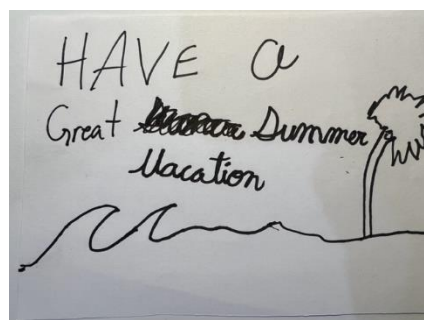 HAVE a
Great Summer
Vacation